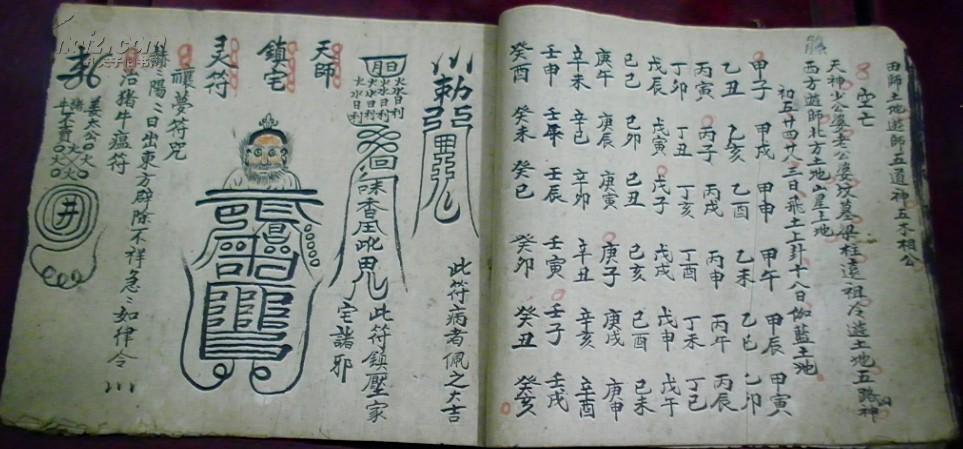 田師土地遊師五道神五木相公
空亡
天神少公婆老公婆坟墓梁柱遠祖冷遊土地五路神
西方遊師北方土地山屋土地
初五廿四廿八三日飛土上卦十八日伽藍土地
甲子 甲戌 甲申 甲午 甲辰 甲寅
乙丑 乙亥 乙酉 乙未 乙巳 乙卯
丙寅 丙子 丙戌 丙申 丙午 丙辰
丁卯 丁丑 丁亥 丁酉 丁未 丁巳
戊辰 戊寅 戊子 戊戌 戊申 戊午
己巳 己卯 己丑 己亥 己酉 己未
庚午 庚辰 庚寅 庚子 庚戌 庚申
辛未 辛巳 辛卯 辛丑 辛亥 辛酉
壬申 壬午 壬辰 壬寅 壬子 壬戌
癸酉 癸未 癸巳 癸卯 癸丑 癸亥
此符病者佩之大吉
火水日利
火水日利
火水日利
火水日利
此符鎮壓家
宅諸邪
天師
鎮宅
灵符
禳夢符咒
赫=陽=日出東方辟除不祥急=如律令
治猪牛瘟符
姜太公
井